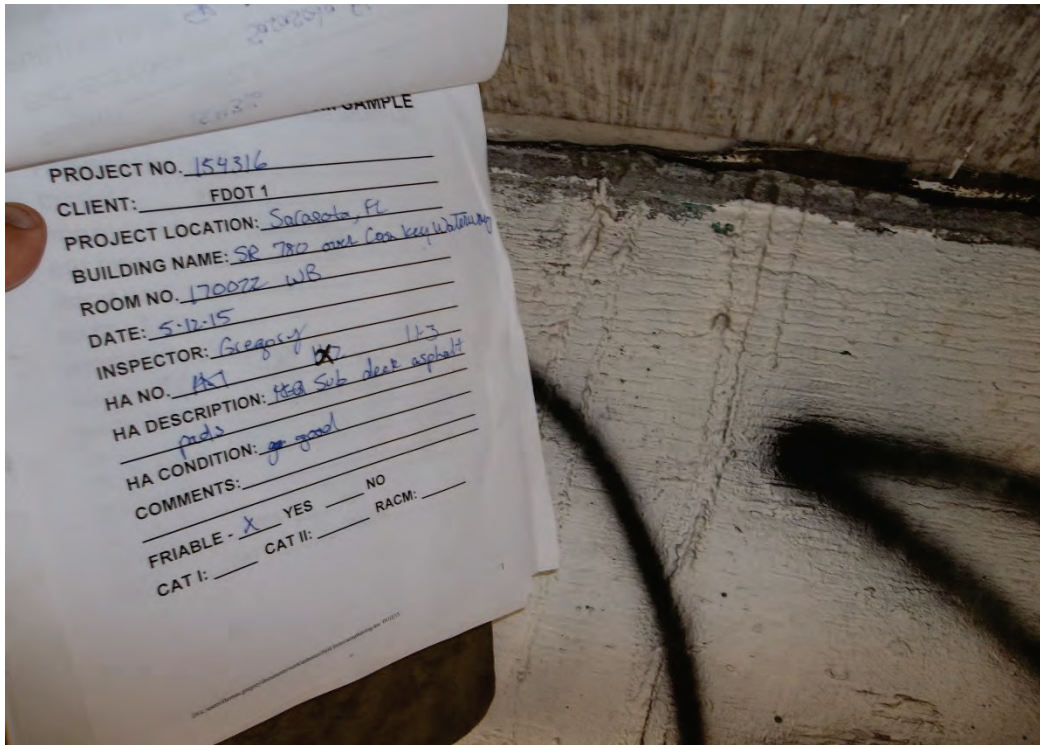 SAMPLE
PROJECT NO. 154316
CLIENT: FDOT 1
PROJECT LOCATION: Sarasota, FL
BUILDING NAME: SR 780 over Coon Key Waterway
ROOM NO. 170022 WB
DATE: 5-12-15
INSPECTOR: Gregory
HA NO. 11-3
HA DESCRIPTION: Sub deck asphalt
pads
HA CONDITION: good
COMMENTS:
FRIABLE - X YES NO
CAT I: CAT II: RACM: